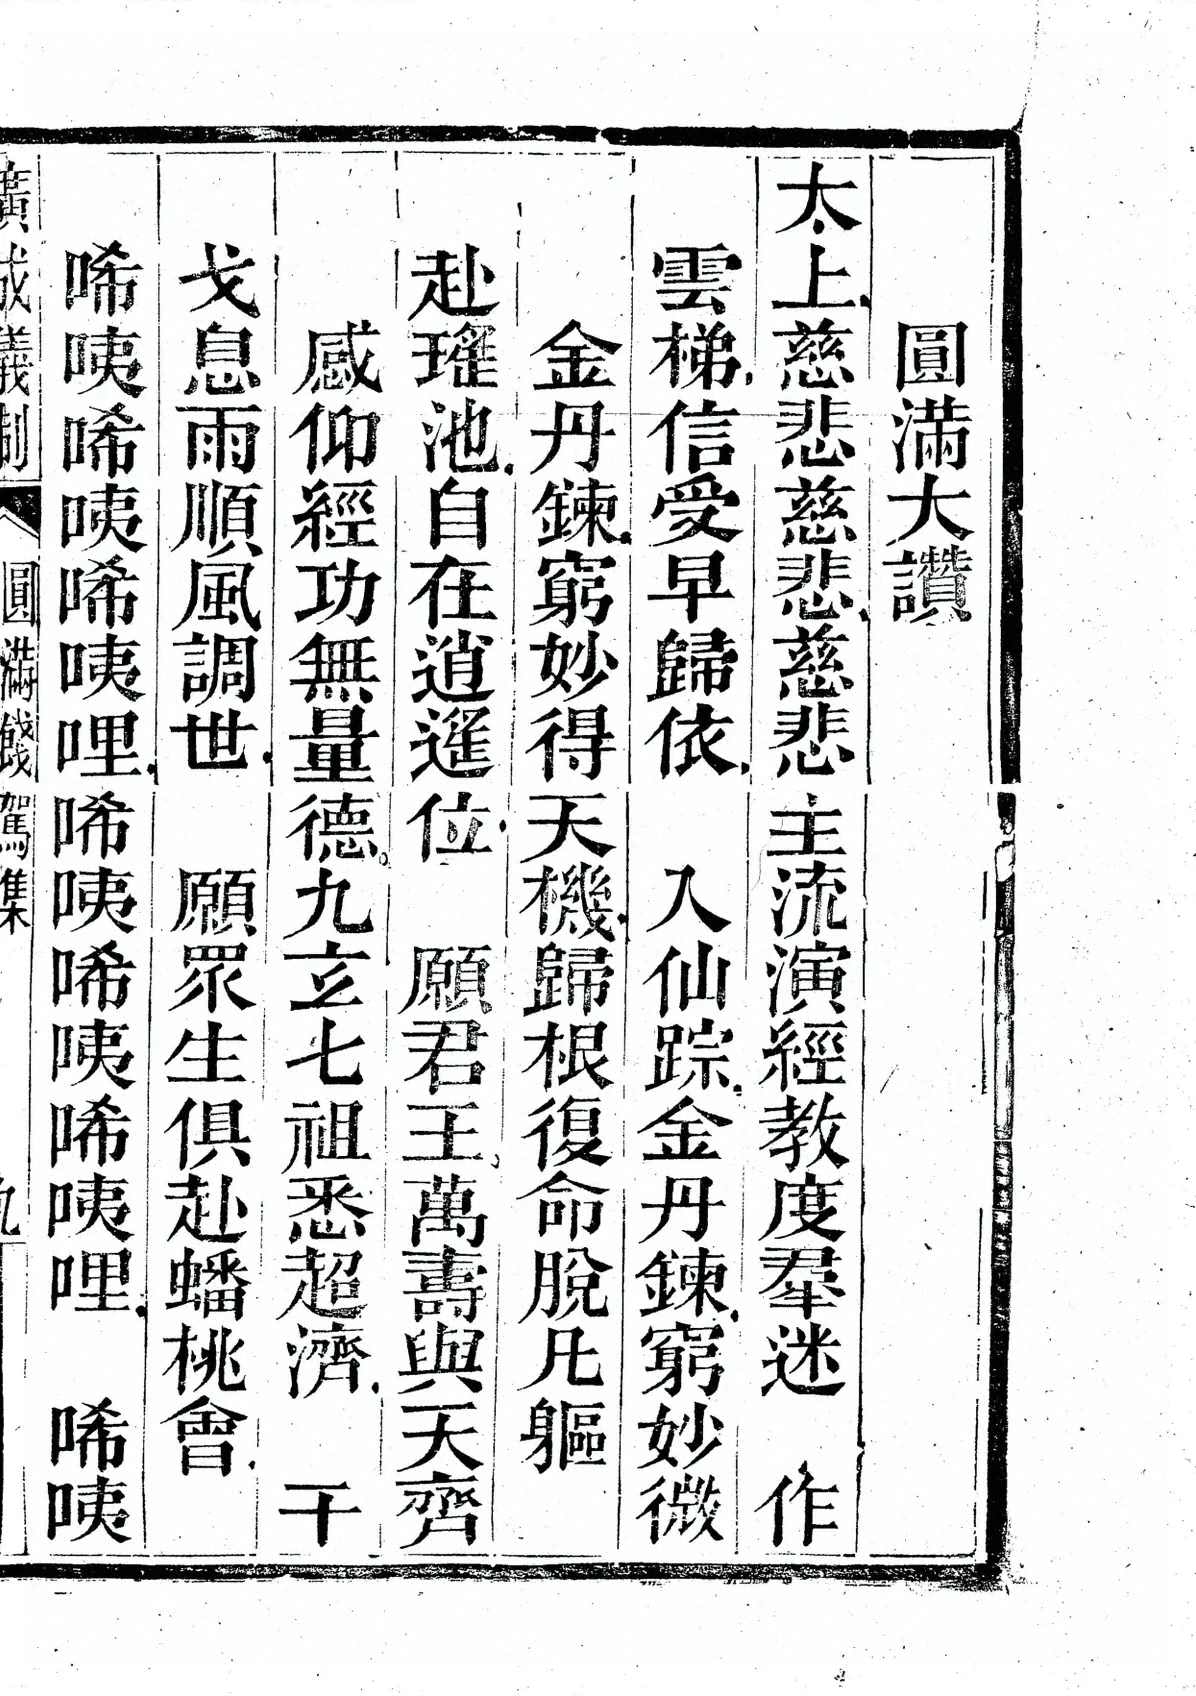 圓滿大讚
太上慈悲慈悲慈悲主流演經教度羣迷　作
雲梯信受早歸依　入仙踪金丹鍊窮妙微
金丹鍊窮妙得天機歸根復命脫凡軀
赴瑤池自在逍遙位　願君王萬壽與天齊
感仰經功無量德九玄七祖悉超濟　干
戈息雨順風調世　願眾生俱赴蟠桃會
唏咦唏咦唏咦哩唏咦唏咦唏咦哩　唏咦
廣成儀制　圓滿餞駕集　九